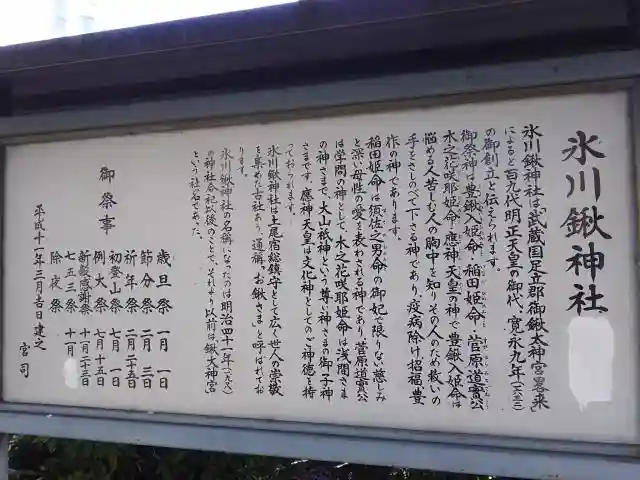 氷川鍬神社
氷川鍬神社は武蔵国足立郡御鍬太神宮畧来
によると百九代明正天皇の御代、寛永九年(一六三二)
の御創立と伝えられます。
御祭神は豊鍬入姫命・稲田姫命・菅原道真公
木之花咲耶姫命・應神天皇の神で豊鍬入姫命は
悩める人苦しむ人の胸中を知りその人のため救いの
手をさしのべて下さる神であり、疫病除け招福豊
作の神であります。
稲田姫命は須佐之男命の御妃で限りない慈しみ
と深い母性の愛を表わされる神であり、菅原道真公
は学問の神として、木之花咲耶姫命は浅間さま
の神さまで、大山祇神という尊い神さまの御子神
さまです。應神天皇は文化神としてのご神徳を持
っておられます。
氷川鍬神社は上尾宿総鎮守として広く世人の崇敬
を専めた古社あり、通称、お鍬さま、と呼ばれてお
ります。
氷川鍬神社の名称になったのは明治四十一年(一九〇八)
の神社合祀以後のことで、それより以前は「鍬太神宮」
という社名であった。
御祭事
歳旦祭 一月一日
節分祭 二月三日
祈年祭 二月二十五日
初登山祭 七月一日
例大祭 七月十五日
新穀感謝祭 十一月二十三日
七五三祭 十一月
除夜祭
平成十一年三月吉日建之
宮司